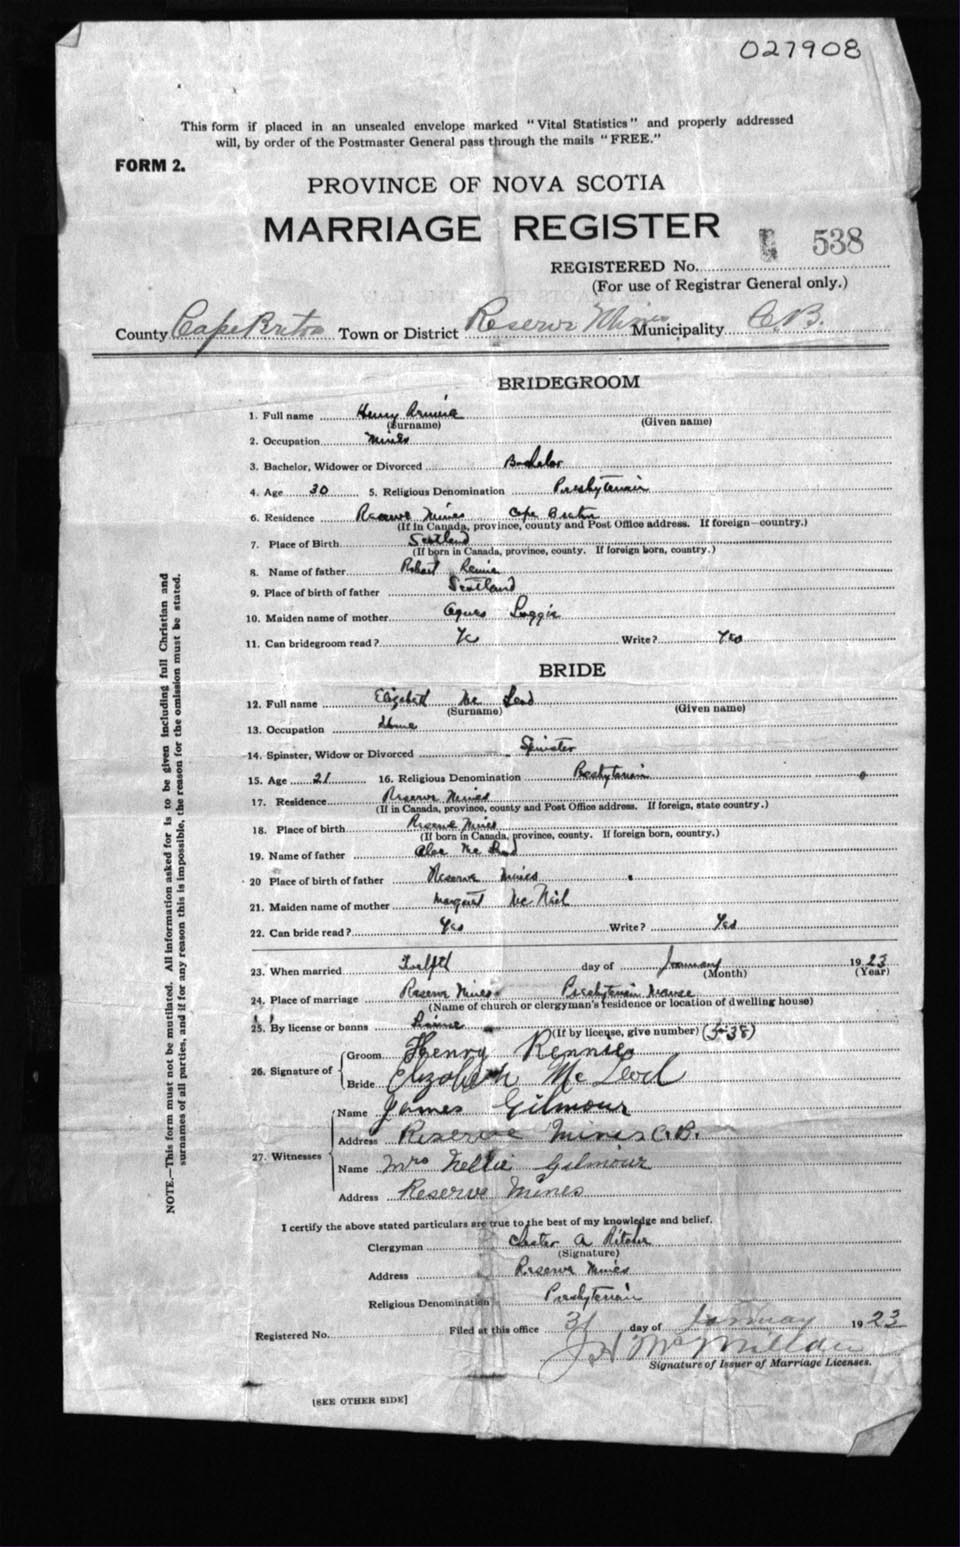 027908
This form if placed in an unsealed envelope marked "Vital Statistics" and properly addressed
will, by order of the Postmaster General pass through the mails "FREE."
FORM 2.
PROVINCE OF NOVA SCOTIA
MARRIAGE REGISTER
538
REGISTERED No.
(For use of Registrar General only.)
County Cape Breton Town or District Reserve Mines Municipality C.B.
BRIDEGROOM
1. Full name Henry Rennie
(Surname) (Given name)
2. Occupation Miner
3. Bachelor, Widower or Divorced Bachelor
4. Age 30 5. Religious Denomination Presbyterian
6. Residence Reserve Mines Cape Breton
(If in Canada, province, county and Post Office address. If foreign—country.)
7. Place of Birth Scotland
(If born in Canada, province, county. If foreign born, country.)
8. Name of father Robert Rennie
9. Place of birth of father Scotland
10. Maiden name of mother Agnes Loggie
11. Can bridegroom read? Yes Write? Yes
BRIDE
12. Full name Elizabeth Mc Leod
(Surname) (Given name)
13. Occupation Home
14. Spinster, Widow or Divorced Spinster
15. Age 21 16. Religious Denomination Presbyterian
17. Residence Reserve Mines
(If in Canada, province, county and Post Office address. If foreign, state country.)
18. Place of birth Reserve Mines
(If born in Canada, province, county. If foreign born, country.)
19. Name of father Alex Mc Leod
20 Place of birth of father Reserve Mines
21. Maiden name of mother Margaret Mc Neil
22. Can bride read? Yes Write? Yes
23. When married Twelfth day of January 1923
(Month) (Year)
24. Place of marriage Reserve Mines Presbyterian Manse
(Name of church or clergyman's residence or location of dwelling house)
25. By license or banns (If by license, give number) (538)
26. Signature of
Groom Henry Rennie
Bride Elizabeth Mc Leod
27. Witnesses
Name James Gilmour
Address Reserve Mines C.B.
Name Mrs Nellie Gilmour
Address Reserve Mines
I certify the above stated particulars are true to the best of my knowledge and belief.
Clergyman Chester A
(Signature)
Address Reserve Mines
Religious Denomination Presbyterian
Registered No. Filed at this office 31 day of January 1923
J H
Signature of Issuer of Marriage Licenses.
[SEE OTHER SIDE]
NOTE.—This form must not be mutilated. All information asked for is to be given including full Christian and
surnames of all parties, and if for any reason this is impossible, the reason for the omission must be stated.